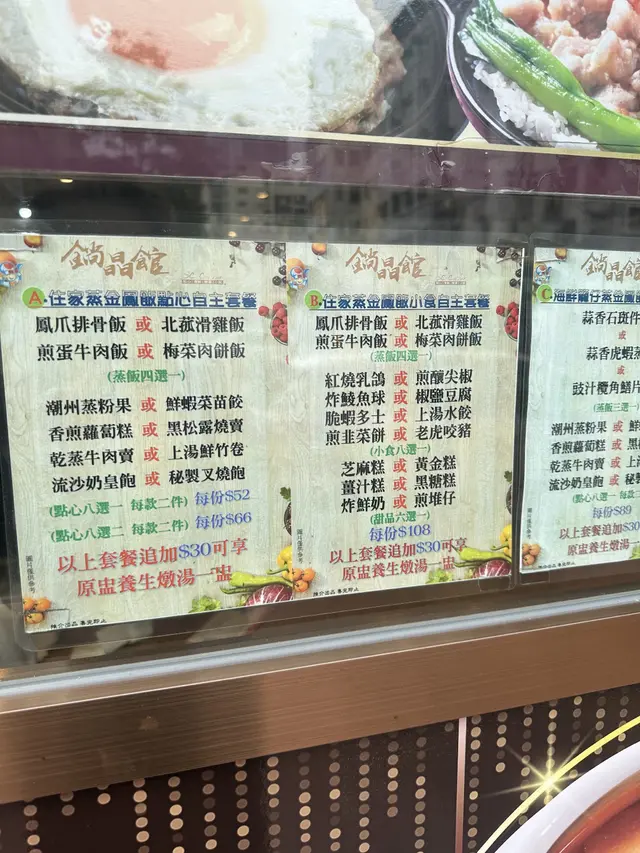 鋿晶館
A.住家蒸金鳳飯點心自主套餐
鳳爪排骨飯 或 北菰滑雞飯
煎蛋牛肉飯 或 梅菜肉餅飯
(蒸飯四選一)
潮州蒸粉果 或 鮮蝦菜苗餃
香煎蘿蔔糕 或 黑松露燒賣
乾蒸牛肉賣 或 上湯鮮竹卷
流沙奶皇飽 或 秘製叉燒飽
(點心八選一 每款二件) 每份$52
(點心八選二 每款二件) 每份$66
以上套餐追加$30可享
原盅養生燉湯一盅
圖片僅供參考
推介出品 售完即止
鋿晶館
B.住家蒸金鳳飯小食自主套餐
鳳爪排骨飯 或 北菰滑雞飯
煎蛋牛肉飯 或 梅菜肉餅飯
(蒸飯四選一)
紅燒乳鴿 或 煎釀尖椒
炸鯪魚球 或 椒鹽豆腐
脆蝦多士 或 上湯水餃
煎韭菜餅 或 老虎咬豬
(小食八選一)
芝麻糕 或 黃金糕
薑汁糕 或 黑糖糕
炸鮮奶 或 煎堆仔
(甜品六選一)
每份$108
以上套餐追加$30可享
原盅養生燉湯一盅
圖片僅供參考
推介出品 售完即止
C.海鮮雞仔蒸金鳳
蒜香石斑件
或
蒜香虎蝦
或
豉汁欖角鱔片
(蒸飯三選一
潮州蒸粉果 或 鮮
香煎蘿蔔糕 或 黑
乾蒸牛肉賣 或 上
流沙奶皇飽 或 秘
(點心八選一 每
每份$89
以上套餐追加$30
原盅養生燉湯